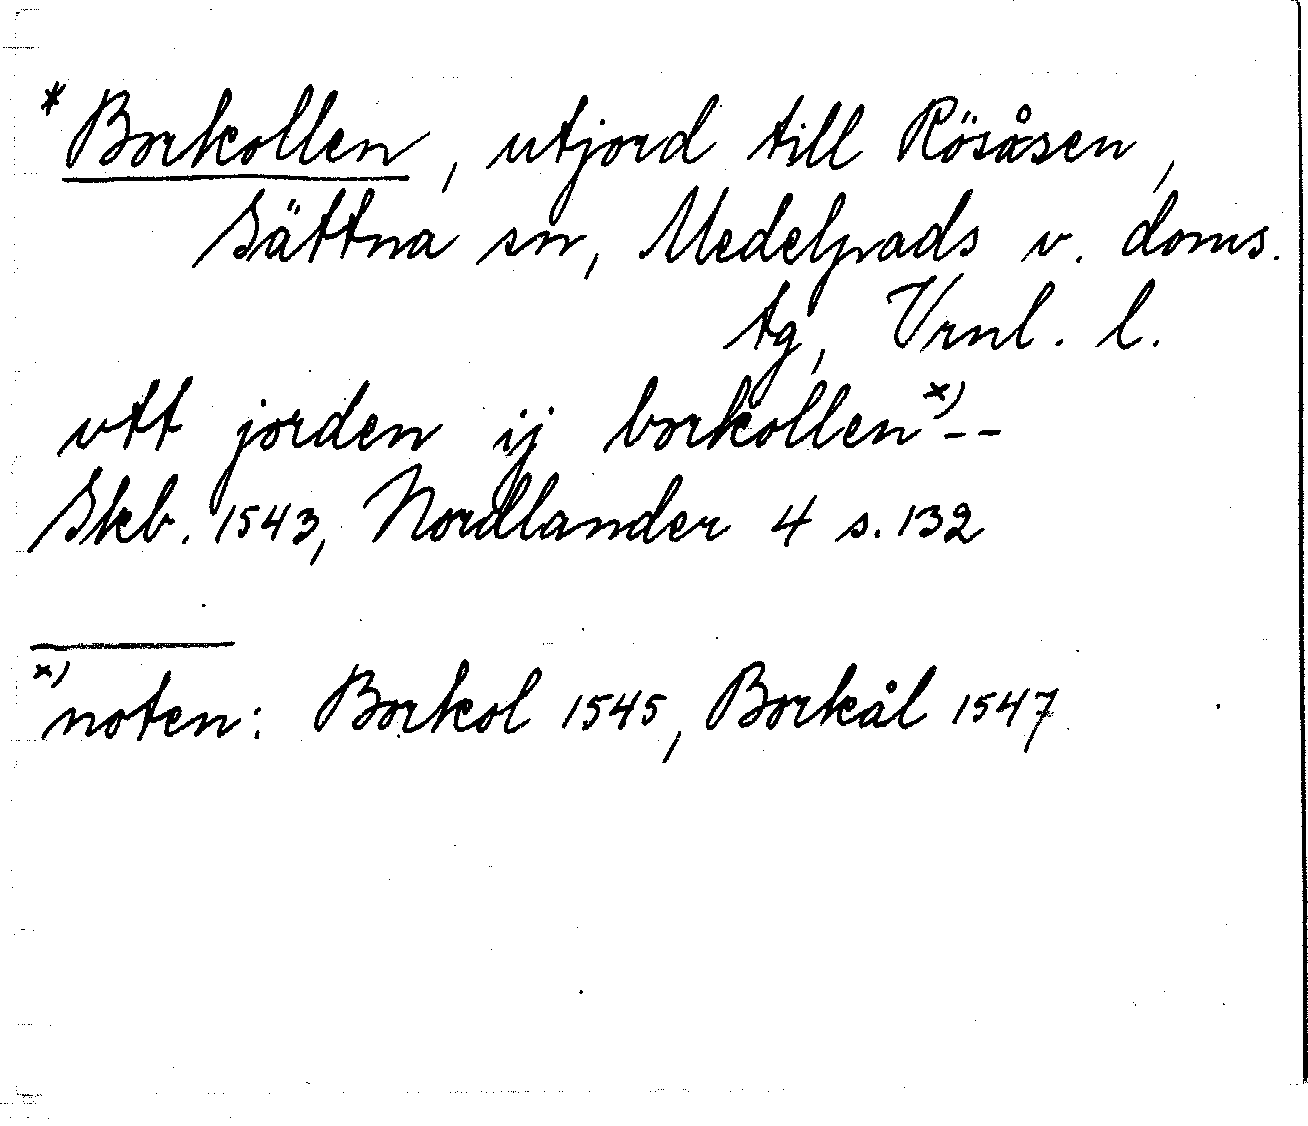 * Borkollen, utjord till Rösåsen,
Sättna sn, Medelpads v. doms.
tg, Vrnl. l.
vtt jorden ij borkollen x) --
Skb. 1543, Nordlander 4 s. 132
x) noten: Borkol 1545, Borkål 1547